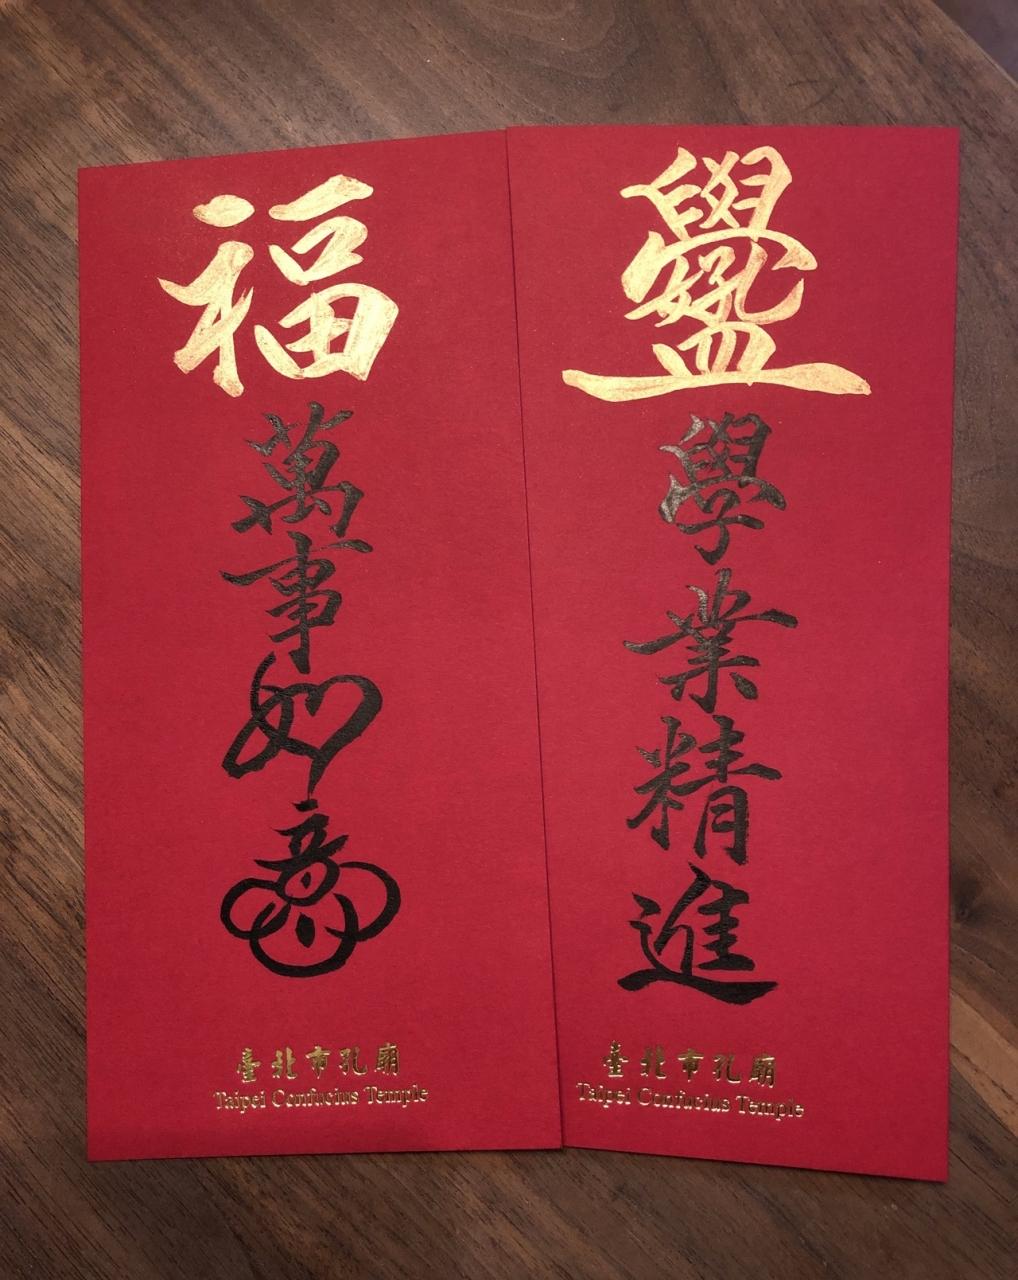 福
萬事如意
臺北市孔廟
Taipei Confucius Temple
學好孔孟
學業精進
臺北市孔廟
Taipei Confucius Temple